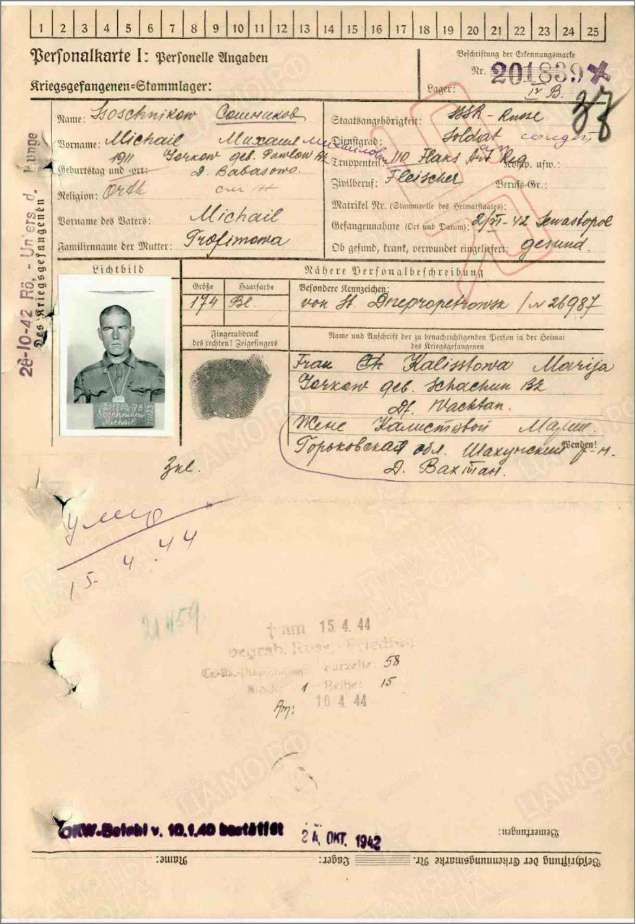 1 2 3 4 5 6 7 8 9 10 11 12 13 14 15 16 17 18 19 20 21 22 23 24 25
Personalkarte I: Personelle Angaben
Beschriftung der Erkennungsmarke
Nr. 201839
Kriegsgefangenen-Stammlager:
Lager: IV B.
Name: Ssoschnikow Сошников
Staatsangehörigkeit: Russe
Vorname: Michail Михаил
Dienstgrad: Soldat солдат
1911 Gorkow geb. Pawlow
Truppenteil: 110 Flaks Reg
Geburtstag und -ort: D. Babasowo
Zivilberuf: Fleischer Berufs-Gr.:
Religion: Orth
Matrikel Nr. (Stammrolle des Heimatstaates):
Vorname des Vaters: Michail
Gefangennahme (Ort und Datum): 2/VI-42 Sewastopol
Familienname der Mutter: Trofimowa
Ob gesund, krank, verwundet eingeliefert: gesund.
28-10-42 Rö.-Unters. d. Lunge
des Kriegsgefangenen.
Lichtbild
Nähere Personalbeschreibung
Größe Haarfarbe
174 Bl
Besondere Kennzeichen:
von St. Dnepropetrowsk / N 26987
Fingerabdruck
des rechten! Zeigefingers
Name und Anschrift der zu benachrichtigenden Person in der Heimat
des Kriegsgefangenen
Frau Kalisstowa Marija
Gorkow geb. Schachun
Df. Wachtan.
Жене Калистовой Марии
Горьковская обл. Шахунский р-н.
Wenden!
Д. Вахтан.
умер
15.4.44
† am 15.4.44
begrab. Russ.-Friedhof
Parzelle: 58
1 Reihe: 15
Am: 16 4 44
OKW-Befehl v. 10.1.40 bestätigt 24. OKT. 1942
Bemerkungen:
Beschriftung der Erkennungsmarke Nr. Lager: Name: